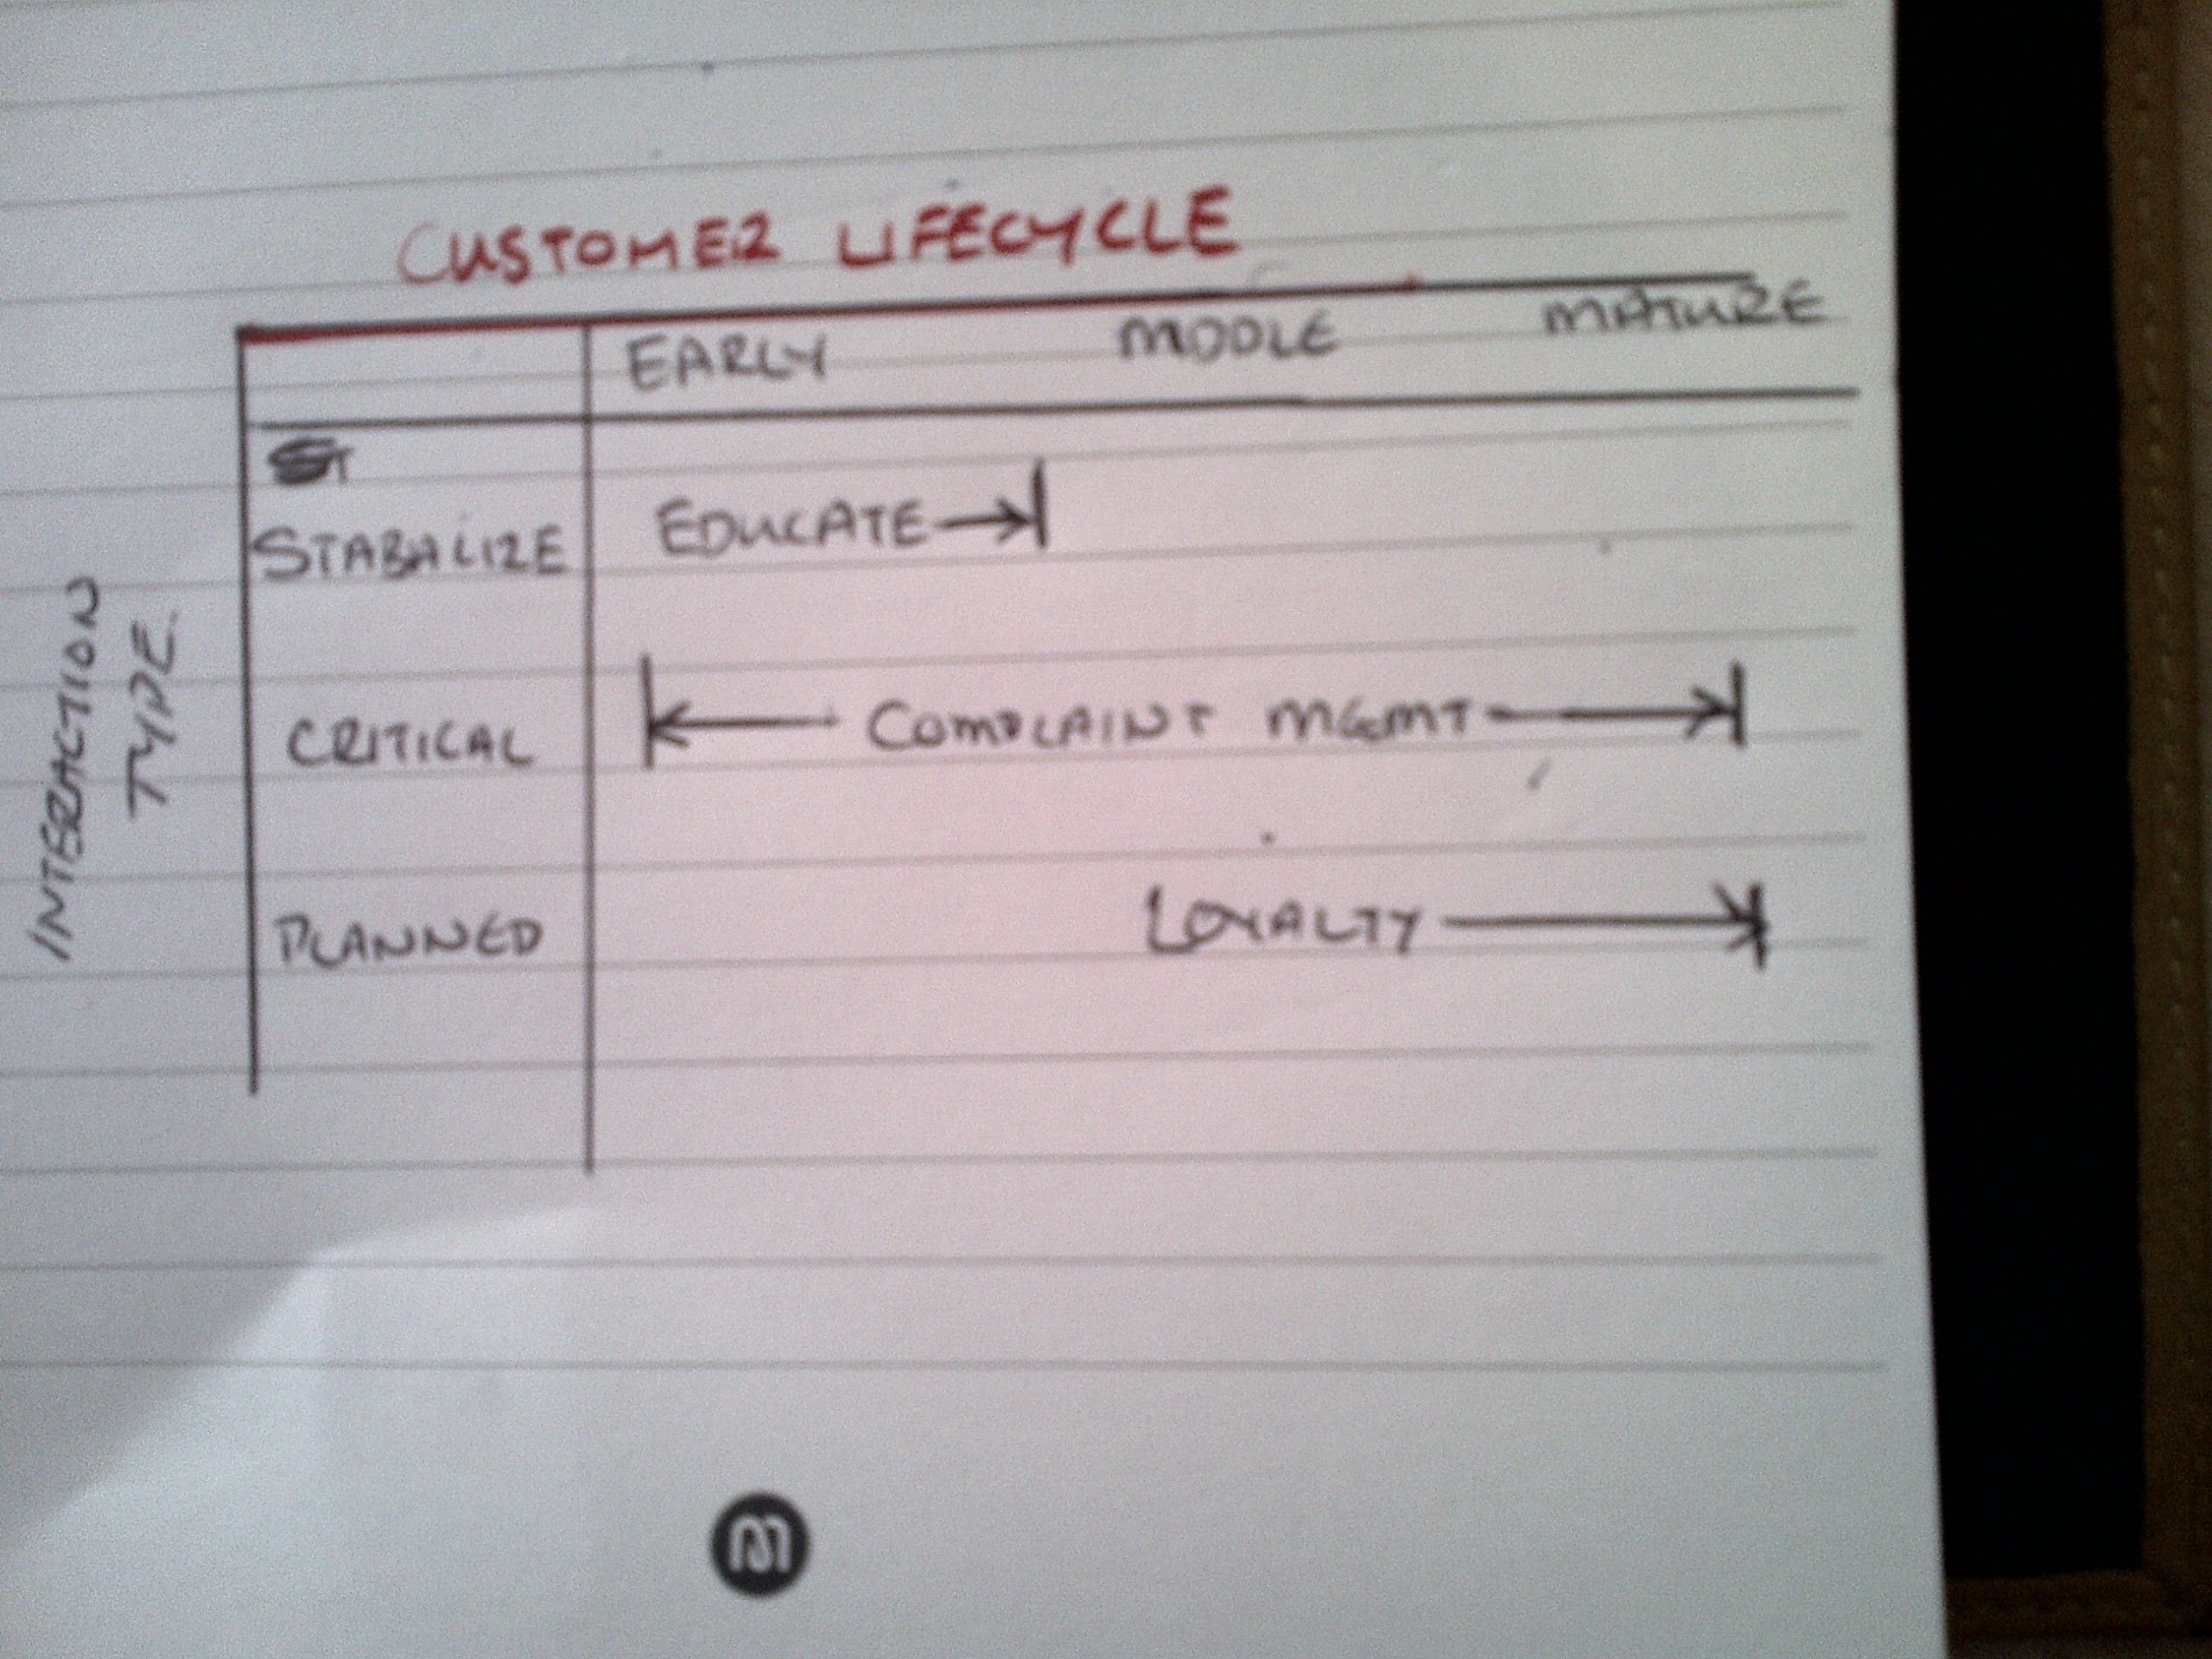 CUSTOMER LIFECYCLE
EARLY MIDDLE MATURE
ST
STABALIZE EDUCATE
INTERACTION
TYPE.
CRITICAL COMPLAINT MGMT
PLANNED LOYALTY